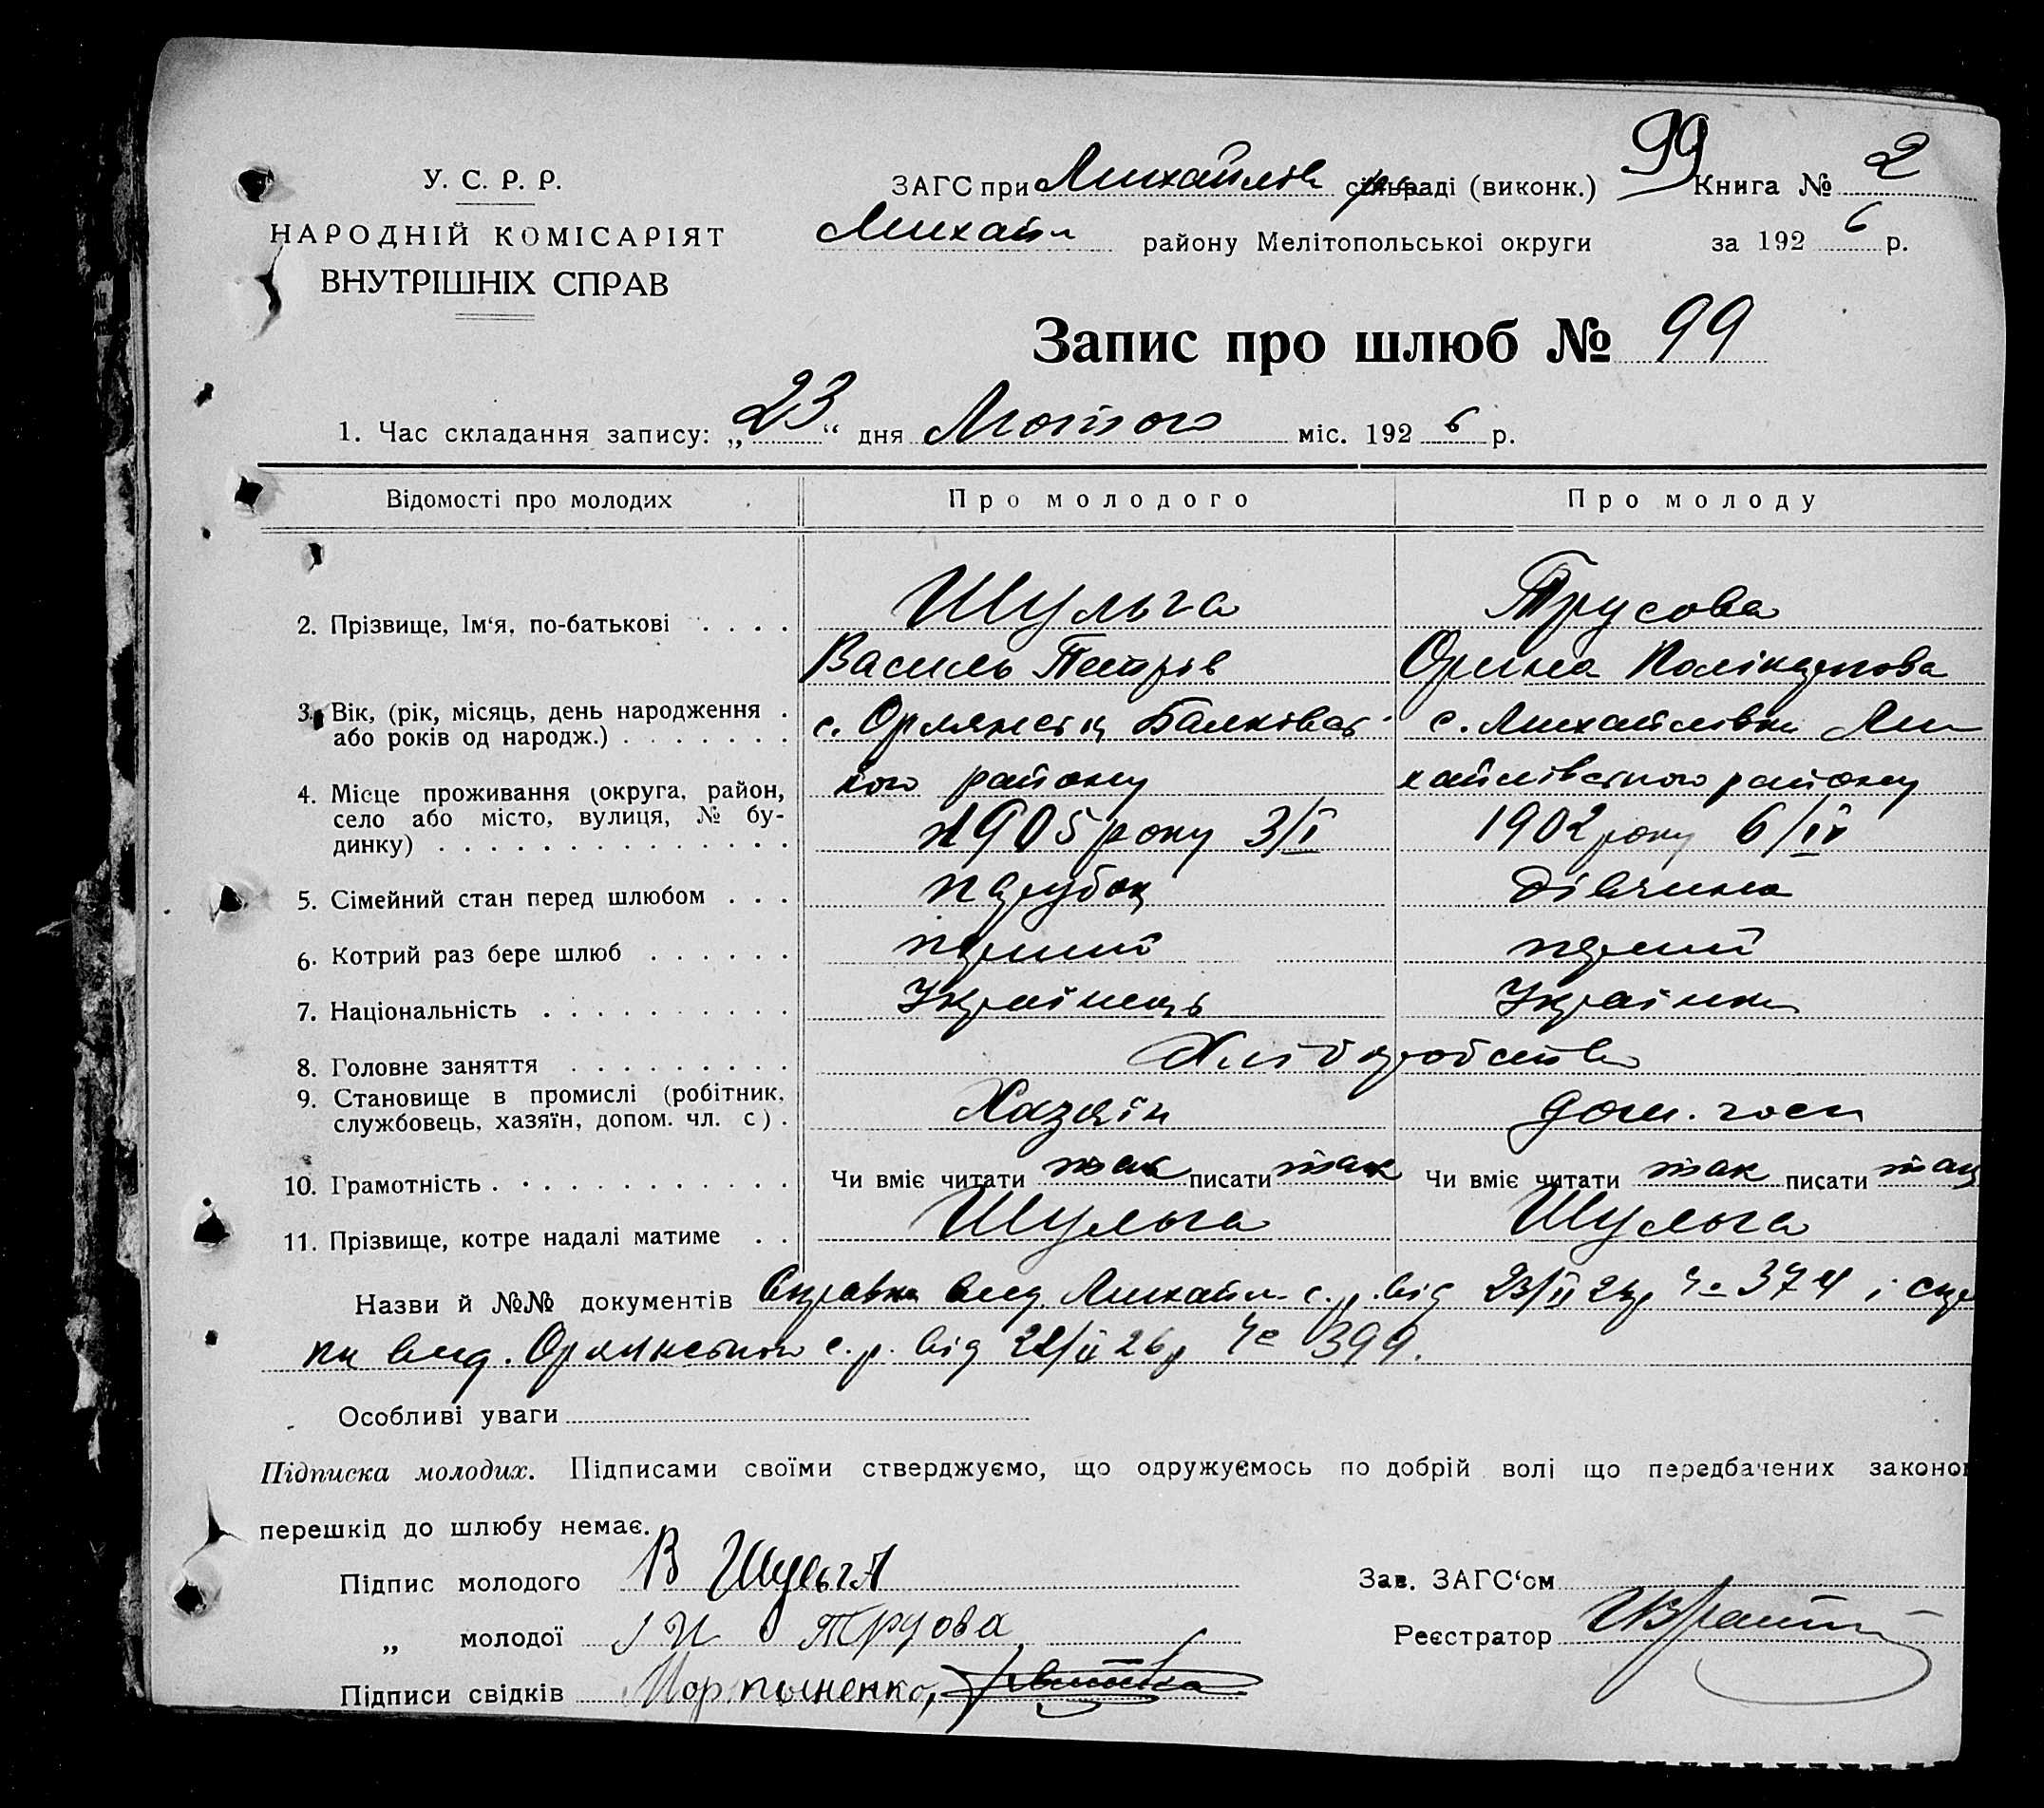 У. С. Р. Р.
НАРОДНІЙ КОМІСАРІЯТ
ВНУТРІШНІХ СПРАВ
99
ЗАГС при Михайлів сільраді (виконк.) Книга № 2
Михайл району Мелітопольської округи за 1926 р.
Запис про шлюб № 99
1. Час складання запису: „23“ дня Лютого міс. 1926 р.
Відомості про молодих Про молодого Про молоду
2. Прізвище, Ім'я, по-батькові . . . . Шульга Трусова
Василь Петров Орина Полікарпова
3. Вік, (рік, місяць, день народження . с. Орлянськ Балківсь- с. Михайлівки Ми
або років од народж.) . . . . . . .
4. Місце проживання (округа, район, кого району хайлівського району
село або місто, вулиця, № бу-
динку) . . . . . . . . . . . . . . 1905 року 3/I 1902 року 6/IV
5. Сімейний стан перед шлюбом . . . парубок дівчина
6. Котрий раз бере шлюб . . . . . . перший перший
7. Національність . . . . . . . . . . Українець Українка
8. Головне заняття . . . . . . . . . Хліборобство
9. Становище в промислі (робітник, Хазяїн дом. госп
службовець, хазяїн, допом. чл. с) .
10. Грамотність . . . . . . . . . . . . Чи вміє читати так писати так Чи вміє читати так писати так
11. Прізвище, котре надалі матиме . . Шульга Шульга
Назви й №№ документів Справка вид. Михайл. с.р. від 23/II 26р № 374 і спр
ки вид. Орлянською с.р. від 22/II 26р № 399.
Особливі уваги
Підписка молодих. Підписами своїми стверджуємо, що одружуємось по добрій волі що передбачених законо
перешкід до шлюбу немає.
Підпис молодого В Шульга Зав. ЗАГС'ом
„ молодої И Трусова Реєстратор
Підписи свідків Мартыненко,